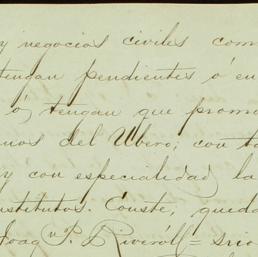 y negocios civiles com
tengan pendientes ó en
ó tengan que promo
nos del Ubero; con ta
y con especialidad la
stitutos. Conste, queda
Joaqn P. Riveroll = srio